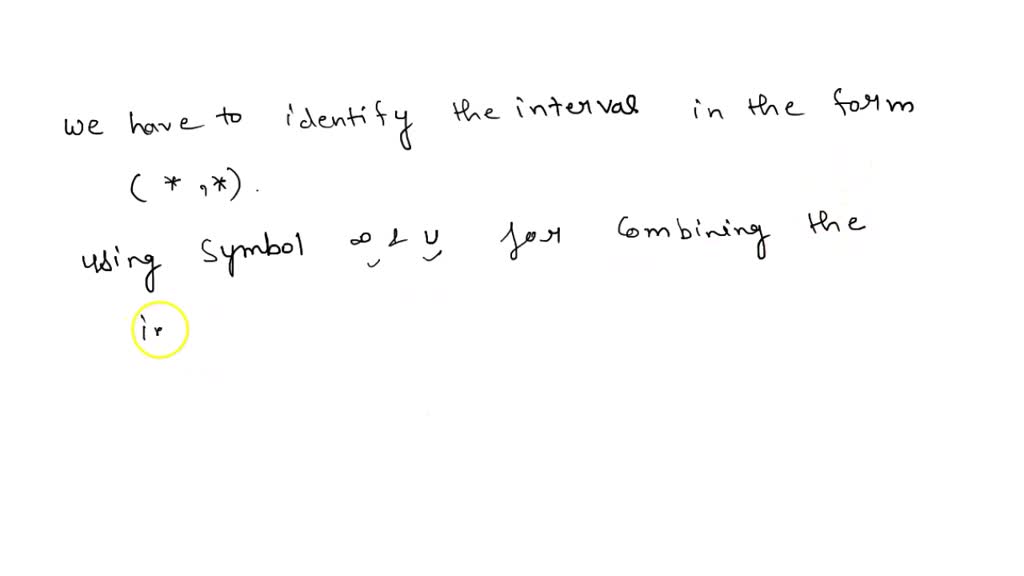 we have to identify the interval in the form
( * , * ) .
using symbol ∞ & ∪ for combining the
in